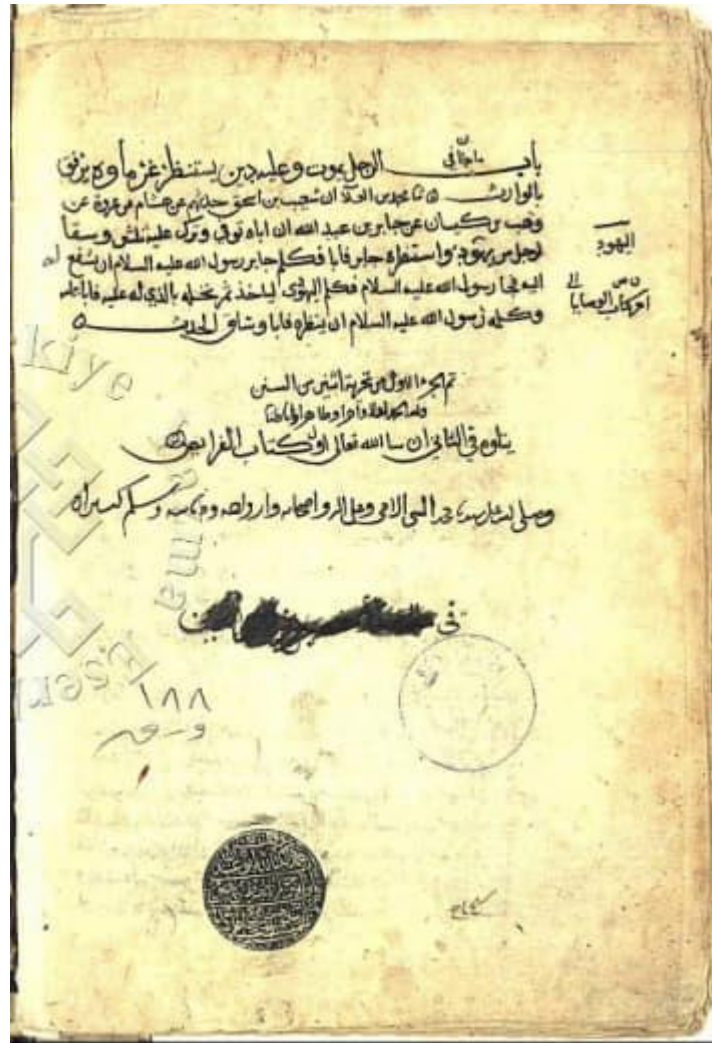 باب ما جاء في الرجل يموت وعليه دين يستنظر غرماؤه يرفق
بالوارث ثنا محمد بن العلاء ان شعيب بن اسحق حدثهم عن هشام بن عروة عن
وهب بن كيسان عن جابر بن عبد الله ان اباه توفي وترك عليه ثلثين وسقا
لرجل من يهود واستنظره جابر فابا فكلم جابر رسول الله عليه السلام ان يشفع له
اليه فجا رسول الله عليه السلام فكلم اليهودي لياخذ ثمر نخله بالذي له عليه فابا عليه
وكلمه رسول الله عليه السلام ان ينظره فابا وساق الحديث
اليهود
اخر كتاب الوصايا
تم الجزء الاول من تجزية اثنين من السنن
ولله الحمد اولا واخرا وظاهرا وباطنا
يتلوه في الثاني ان سا الله تعالى اول كتاب الفرايض
وصلى الله على سيدنا محمد النبي الامي وعلى اله واصحابه وازواجه وسلم كثيرا
في
١٨٨
ورق
Türkiye Yazma Eser